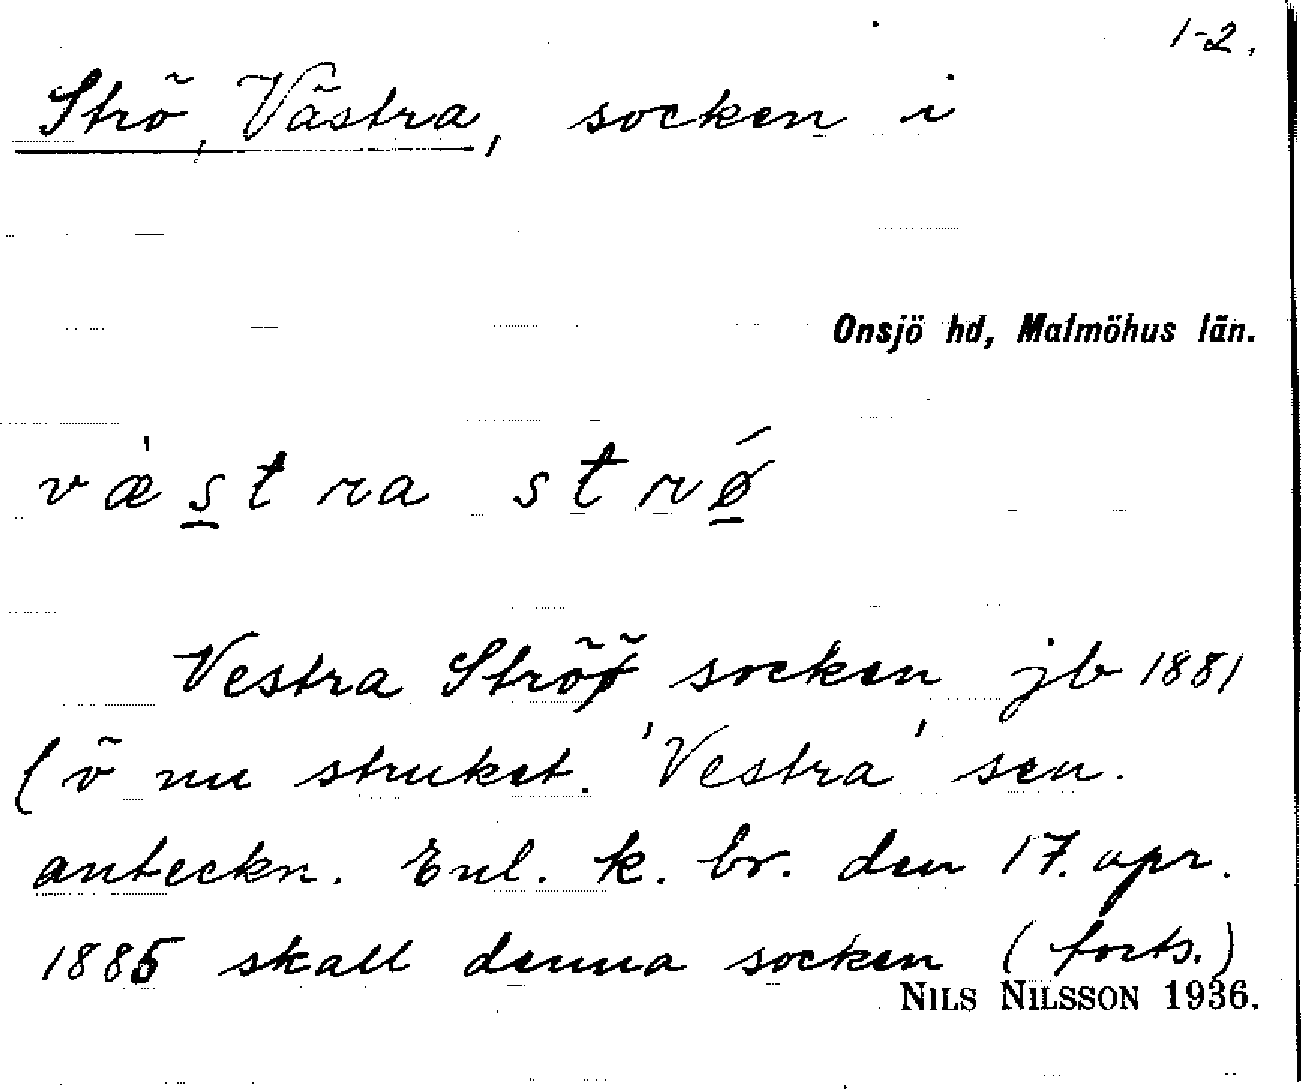 1-2.
Strö, Västra, socken i
Onsjö hd, Malmöhus län.
væ̀stra strǿ
Vestra Ströö̸ socken jb 1881
(ö nu struket. 'Vestra' sen.
anteckn. Enl. k. br. den 17. apr.
1885 skall denna socken (forts.)
NILS NILSSON 1936.